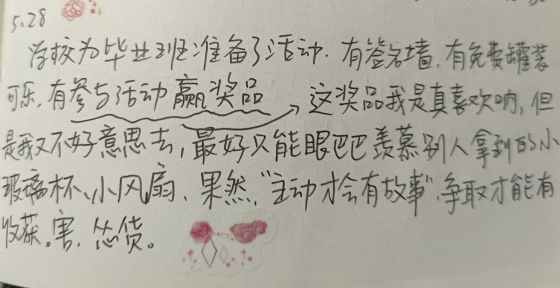 5.28
学校为毕业班准备了活动。有签名墙,有免费罐装
可乐,有参与活动赢奖品 这奖品我是真喜欢呐,但
是我又不好意思去,最好只能眼巴巴羡慕别人拿到的小
玻璃杯、小风扇,果然,“主动才会有故事”,争取才能有
收获。害,怂货。